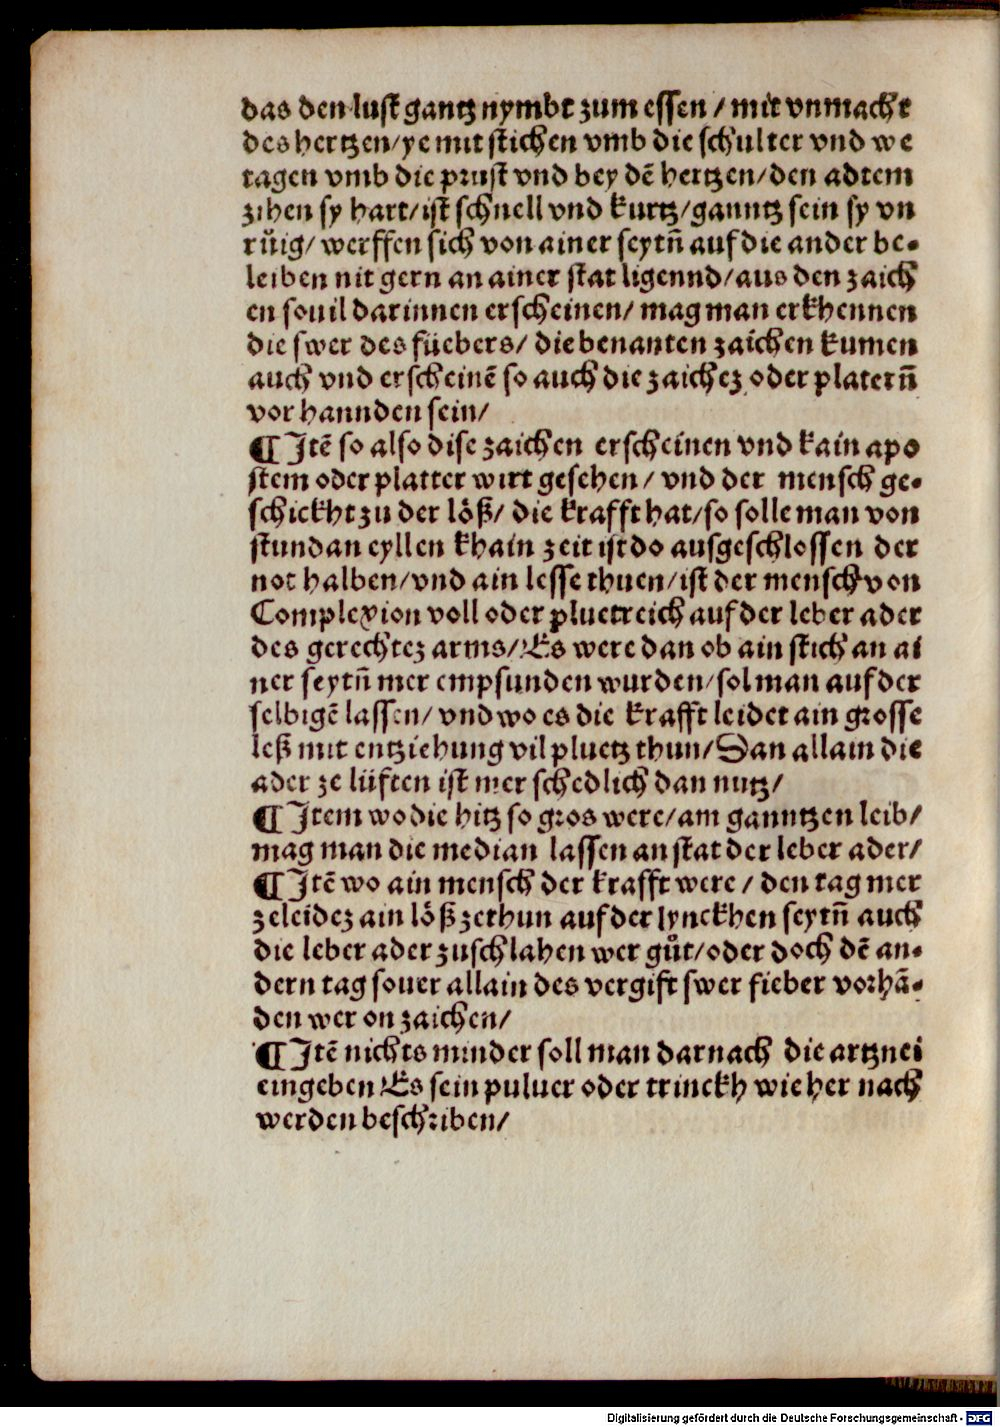 das den lust gantz nymbt zum essen / mit vnmacht
des hertzen/ ye mit stichen vmb die schulter vnd we
tagen vmb die prust vnd bey dē hertzen/ den adtem
zihen sy hart/ ist schnell vnd kurtz/ ganntz sein sy vn
růig/ werffen sich von ainer seytn̄ auf die ander be-
leiben nit gern an ainer stat ligennd/ aus den zaich
en souil darinnen erscheinen/ mag man erkhennen
die swer des füebers/ die benanten zaichen kumen
auch vnd erscheinē so auch die zaichez oder platern̄
vor hannden sein/
¶ Jtē so also dise zaichen erscheinen vnd kain apo
stem oder platter wirt gesehen / vnd der mensch ge-
schickht zu der löß/ die krafft hat/ so solle man von
stundan eyllen khain zeit ist do ausgeschlossen der
not halben/ vnd ain lesse thuen/ ist der mensch von
Complexion voll oder pluetreich auf der leber ader
des gerechtez arms/ Es were dan ob ain stich an ai
ner seytn̄ mer empfunden wurden/ sol man auf der
selbigē lassen/ vnd wo es die krafft leidet ain grosse
leß mit entziehung vil pluetz thun/ Dan allain die
ader ze lüften ist mer schedlich dan nutz/
¶ Jtem wo die hitz so gros were/ am ganntzen leib/
mag man die median lassen an stat der leber ader/
¶ Jtē wo ain mensch der krafft were / den tag mer
zeleidez ain löß zethun auf der lynckhen seytn̄ auch
die leber ader zuschlahen wer gůt/ oder doch dē an-
dern tag souer allain des vergift swer fieber vorhā-
den wer on zaichen/
¶ Jtē nichts minder soll man darnach die artznei
eingeben Es sein puluer oder trinckh wie her nach
werden beschriben/
Digitalisierung gefördert durch die Deutsche Forschungsgemeinschaft - DFG